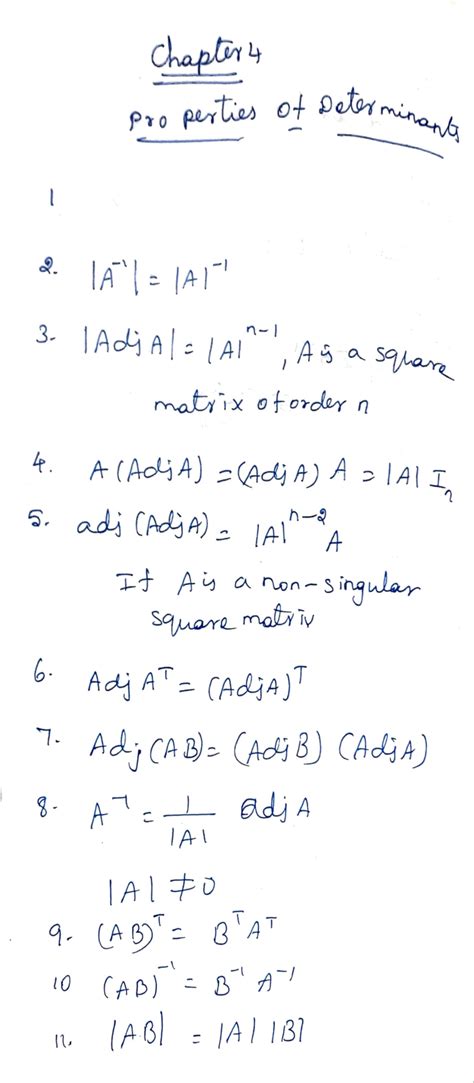 Chapter 4
Properties of Determinants
1
2. |A⁻¹| = |A|⁻¹
3. |Adj A| = |A|ⁿ⁻¹, A is a square
matrix of order n
4. A (Adj A) = (Adj A) A = |A| Iₙ
5. adj (Adj A) = |A|ⁿ⁻² A
If A is a non-singular
square matriv
6. Adj Aᵀ = (Adj A)ᵀ
7. Adj (AB) = (Adj B) (Adj A)
8. A⁻¹ = 1/|A| adj A
|A| ≠ 0
9. (AB)ᵀ = Bᵀ Aᵀ
10 (AB)⁻¹ = B⁻¹ A⁻¹
11. |AB| = |A| |B|